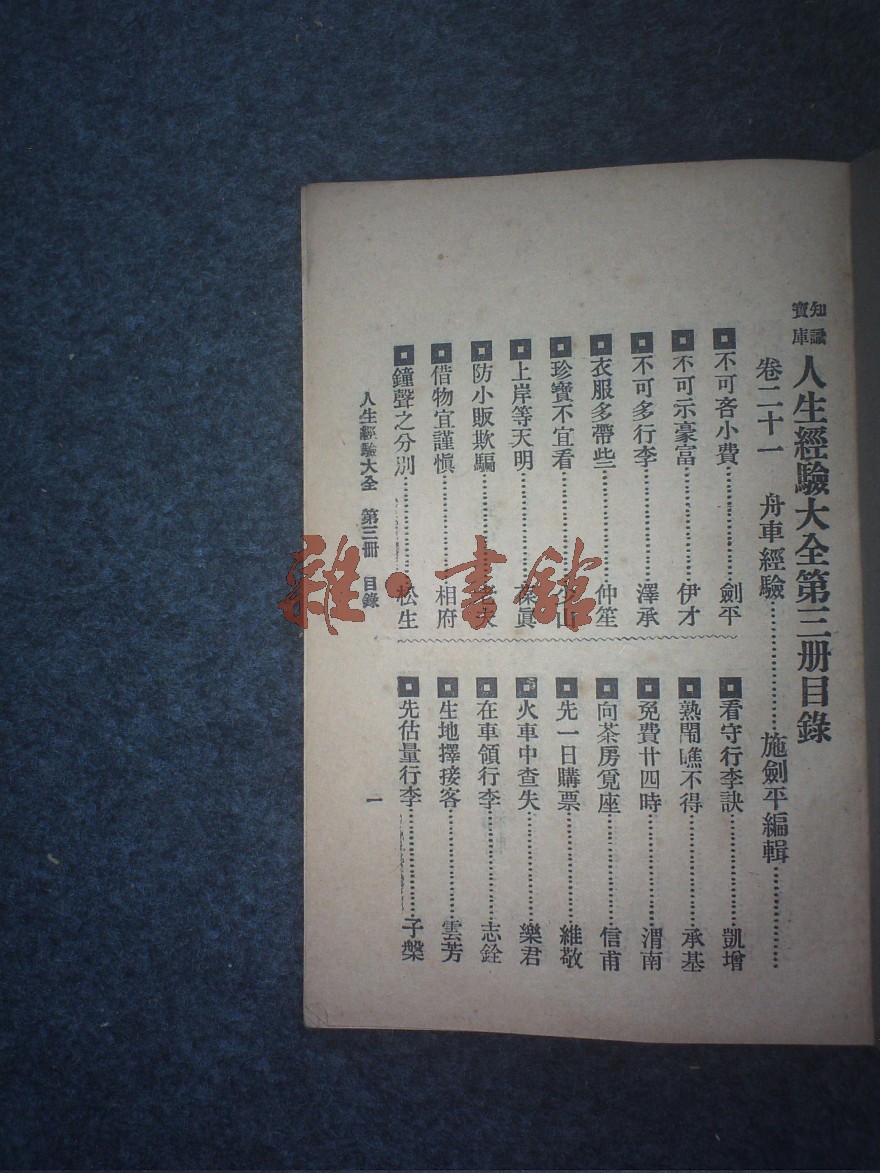 知識
寶庫
人生經驗大全第三册目錄
卷二十一 舟車經驗…………施劍平編輯…………
不可吝小費…………劍平
不可示豪富…………伊才
不可多行李…………澤承
衣服多帶些…………仲笙
珍寶不宜看…………山
上岸等天明…………葆眞
防小販欺騙…………老夫
借物宜謹愼…………相府
鐘聲之分別…………松生
看守行李訣…………凱增
熱鬧瞧不得…………承基
免費廿四時…………渭南
向茶房覓座…………信甫
先一日購票…………維敬
火車中查失…………樂君
在車領行李…………志銓
生地擇接客…………雲芳
先估量行李…………子槃
人生經驗大全 第三冊 目錄
一
雜·書館